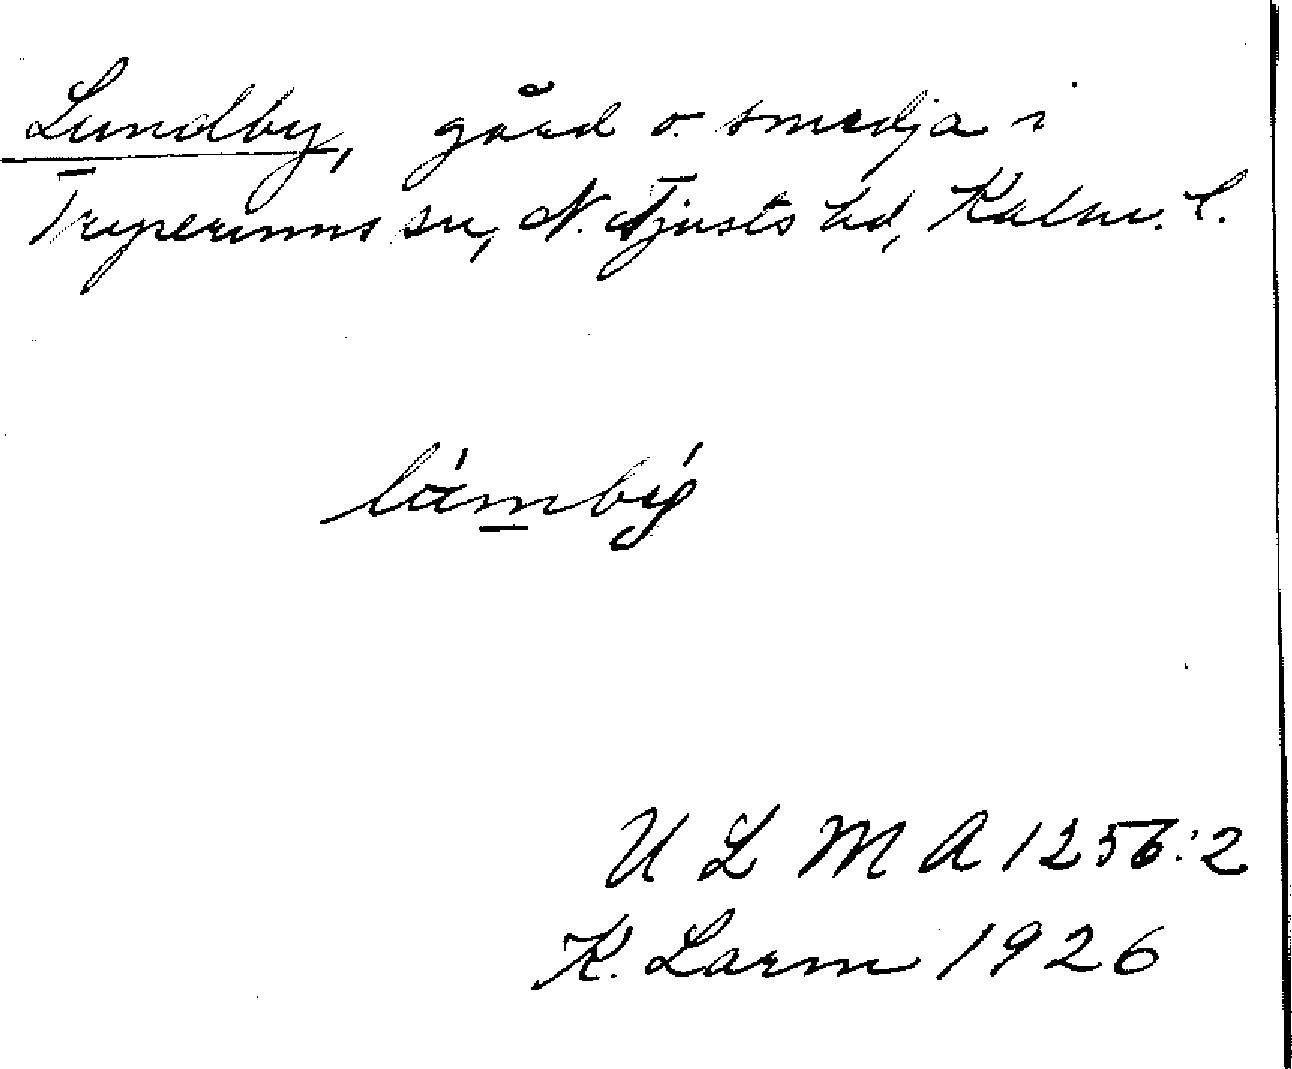 Lundby, gård o. smedja i
Tryserums sn, N. Tjusts hd, Kalm. l.
lámbý
U L M A 1256:2
K. Larm 1926